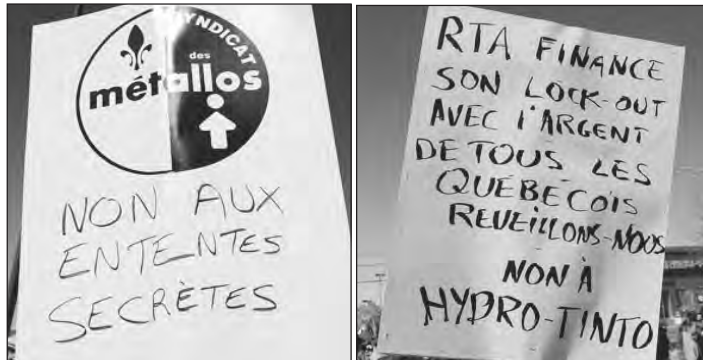 SYNDICAT
des
métallos
NON AUX
ENTENTES
SECRÈTES
RTA FINANCE
SON LOCK-OUT
AVEC l'ARGENT
DE TOUS LES
QUÉBÉCOIS
REVEILLONS-NOUS
NON À
HYDRO-TINTO